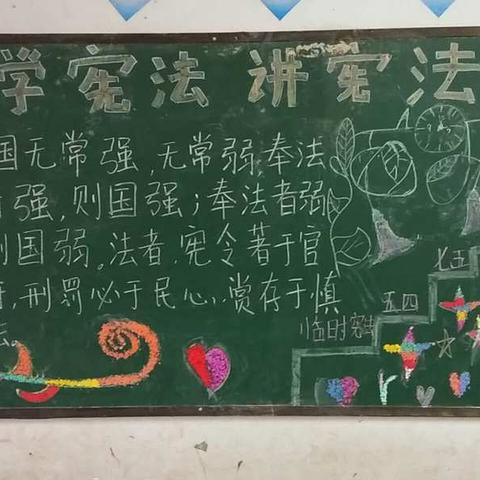 学宪法 讲宪法
国无常强,无常弱,奉法
强,则国强;奉法者弱,
则国弱。法者,宪令著于官
府,刑罚必于民心,赏存于慎
法。
七五
五四
临时宪